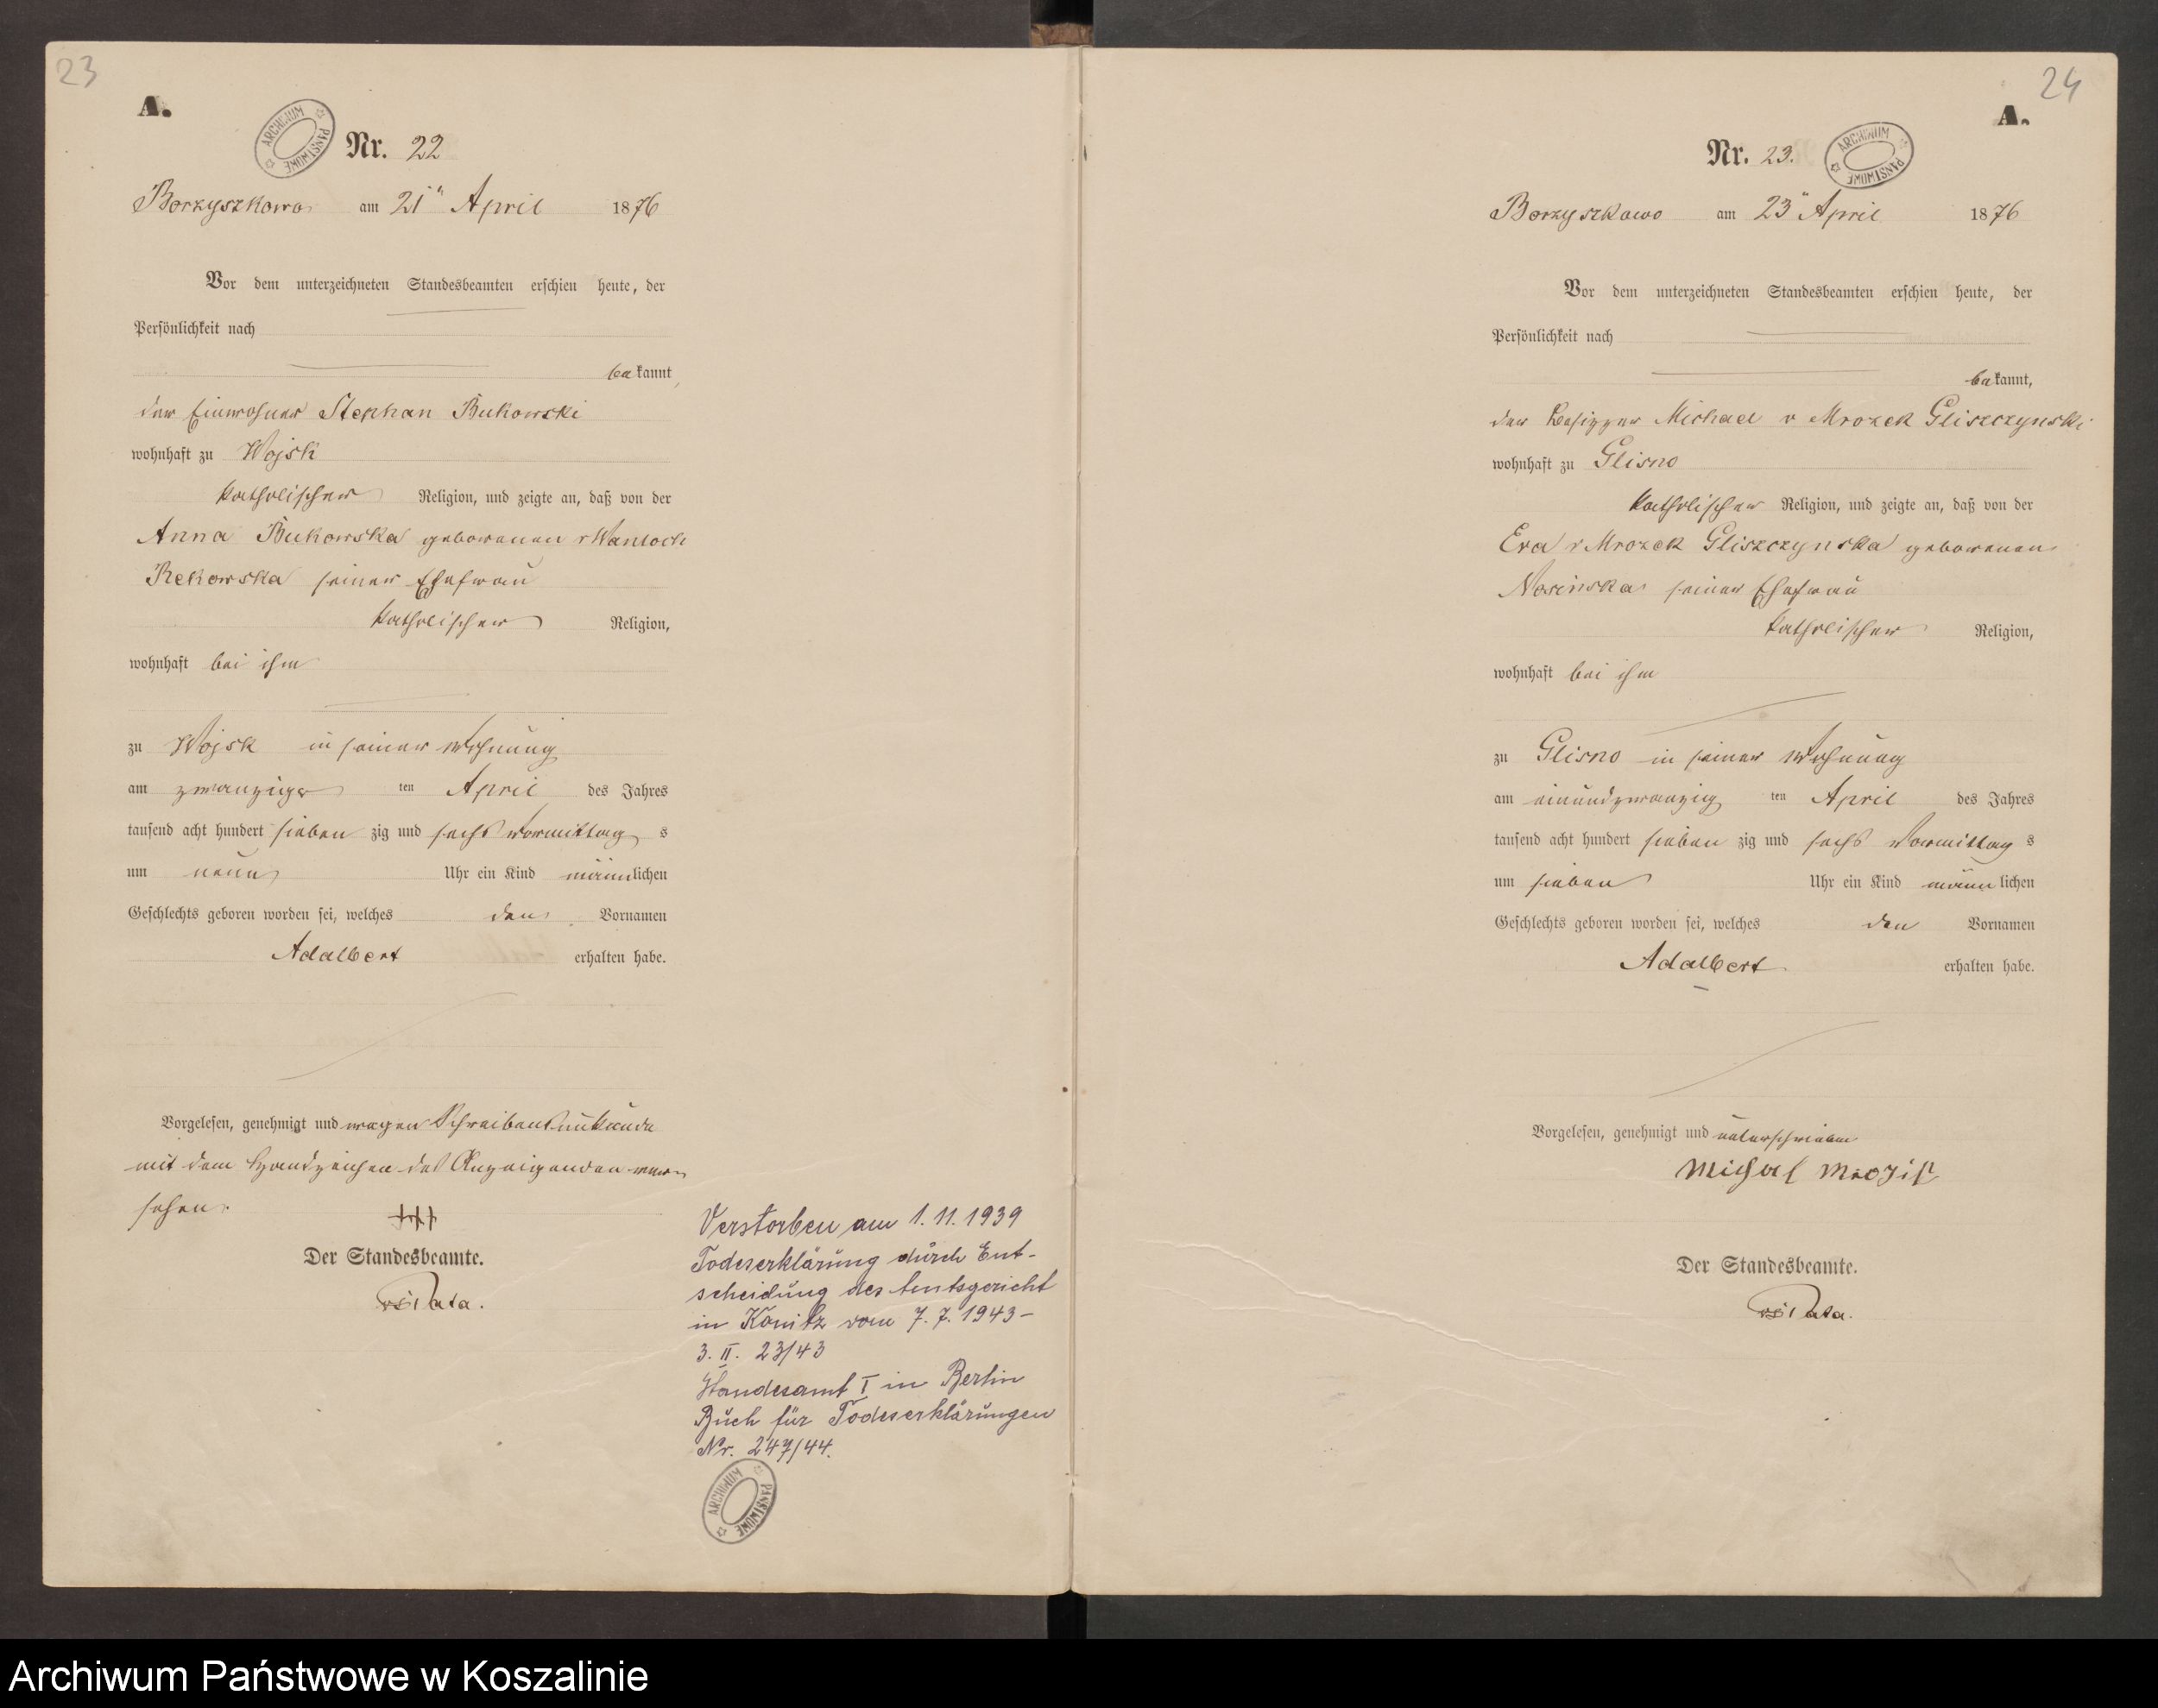 23
A.
ARCHIWUM PAŃSTWOWE
Nr. 22
Borzyszkowo am 21ten April 1876
Vor dem unterzeichneten Standesbeamten erschien heute, der
Persönlichkeit nach
bekannt,
der Einwohner Stephan Bukowski
wohnhaft zu Wojsk
katholischer Religion, und zeigte an, daß von der
Anna Bukowska geborenen v Wantoch
Rekowska seiner Ehefrau
katholischer Religion,
wohnhaft bei ihm
zu Wojsk in seiner Wohnung
am zwanzigs ten April des Jahres
tausend acht hundert sieben zig und sechs Vormittag s
um neun Uhr ein Kind männlichen
Geschlechts geboren worden sei, welches den Vornamen
Adalbert erhalten habe.
Vorgelesen, genehmigt und wegen Schreibensunkunde
mit dem Handzeichen des Anzeigenden ver-
sehen.
+++
Der Standesbeamte.
Pata.
Verstorben am 1.11.1939
Todeserklärung durch Ent-
scheidung des Amtsgericht
in Konitz vom 7.7.1943 –
3. II. 23/43
Standesamt I in Berlin
Buch für Todeserklärungen
Nr. 247/44.
ARCHIWUM PAŃSTWOWE
24
A.
Nr. 23.
ARCHIWUM PAŃSTWOWE
Borzyszkowo am 23ten April 1876
Vor dem unterzeichneten Standesbeamten erschien heute, der
Persönlichkeit nach
bekannt,
der Besitzer Michael v Mrozek Gliszczynski
wohnhaft zu Glisno
katholischer Religion, und zeigte an, daß von der
Eva v Mrozek Gliszczynska geborenen
Nosinska seiner Ehefrau
katholischer Religion,
wohnhaft bei ihm
zu Glisno in seiner Wohnung
am einundzwanzig ten April des Jahres
tausend acht hundert sieben zig und sechs Vormittag s
um sieben Uhr ein Kind männlichen
Geschlechts geboren worden sei, welches den Vornamen
Adalbert erhalten habe.
Vorgelesen, genehmigt und unterschrieben
Der Standesbeamte.
Pata.
Archiwum Państwowe w Koszalinie